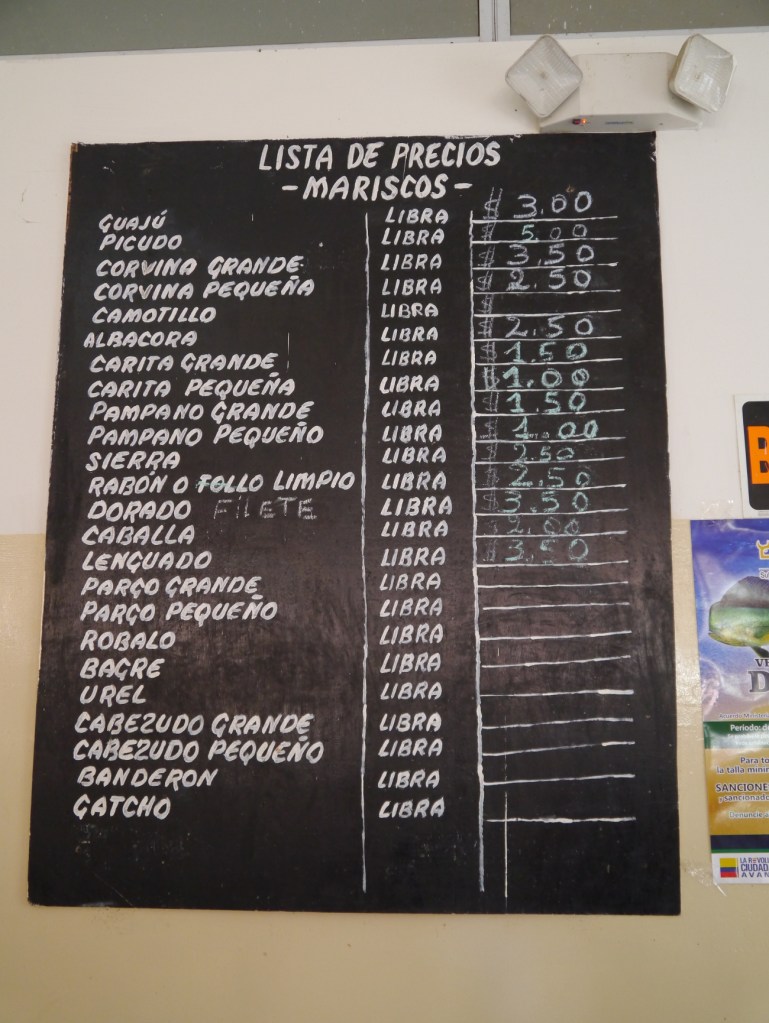 LISTA DE PRECIOS
- MARISCOS -
GUAJÚ LIBRA $ 3.00
PICUDO LIBRA $ 5.00
CORVINA GRANDE LIBRA $ 3.50
CORVINA PEQUEÑA LIBRA $ 2.50
CAMOTILLO LIBRA $
ALBACORA LIBRA $ 2.50
CARITA GRANDE LIBRA $ 1.50
CARITA PEQUEÑA LIBRA $ 1.00
PAMPANO GRANDE LIBRA $ 1.50
PAMPANO PEQUEÑO LIBRA $ 1.00
SIERRA LIBRA $ 2.50
RABÓN O FOLLO LIMPIO LIBRA $ 2.50
DORADO FILETE LIBRA $ 3.50
CABALLA LIBRA $ 2.00
LENGUADO LIBRA $ 3.50
PARGO GRANDE LIBRA
PARGO PEQUEÑO LIBRA
ROBALO LIBRA
BAGRE LIBRA
UREL LIBRA
CABEZUDO GRANDE LIBRA
CABEZUDO PEQUEÑO LIBRA
BANDERON LIBRA
GATCHO LIBRA
B
VE
D
Periodo: de
Para to
la talla mínim
SANCIONE
y sancionado
Denuncie a
LA REVOLU
CIUDADA
AVAN